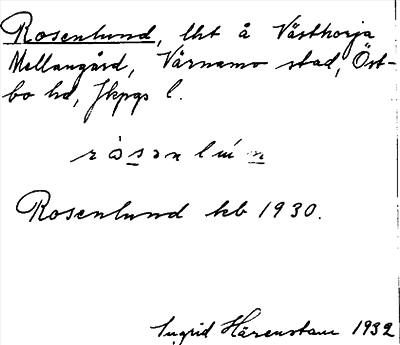 Rosenlund, lht å Västhorja
Mellangård, Värnamo stad, Öst-
bo hd, Jkpgs l.
ròsənlún
Rosenlund kb 1930.
Ingrid Härenstam 1932